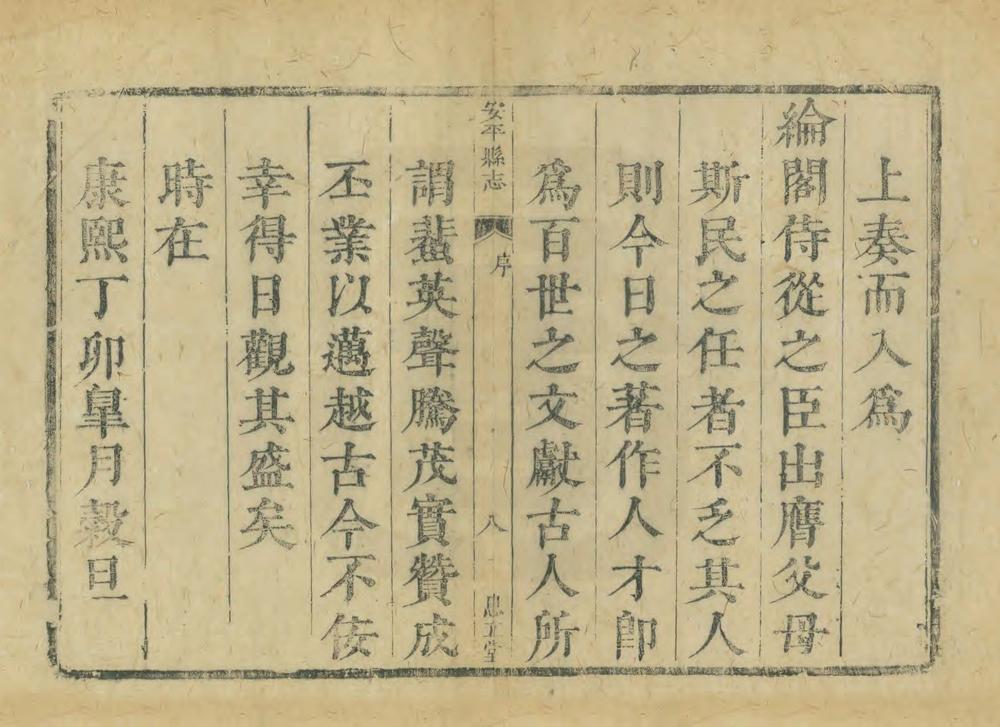 上奏而入爲
綸閣侍從之臣出膺父母
斯民之任者不乏其人
則今日之著作人才卽
爲百世之文獻古人所
安平縣志
序
八
堂
謂蜚英聲騰茂實贊成
丕業以邁越古今不佞
幸得日觀其盛矣
時在
康熙丁卯皐月穀旦